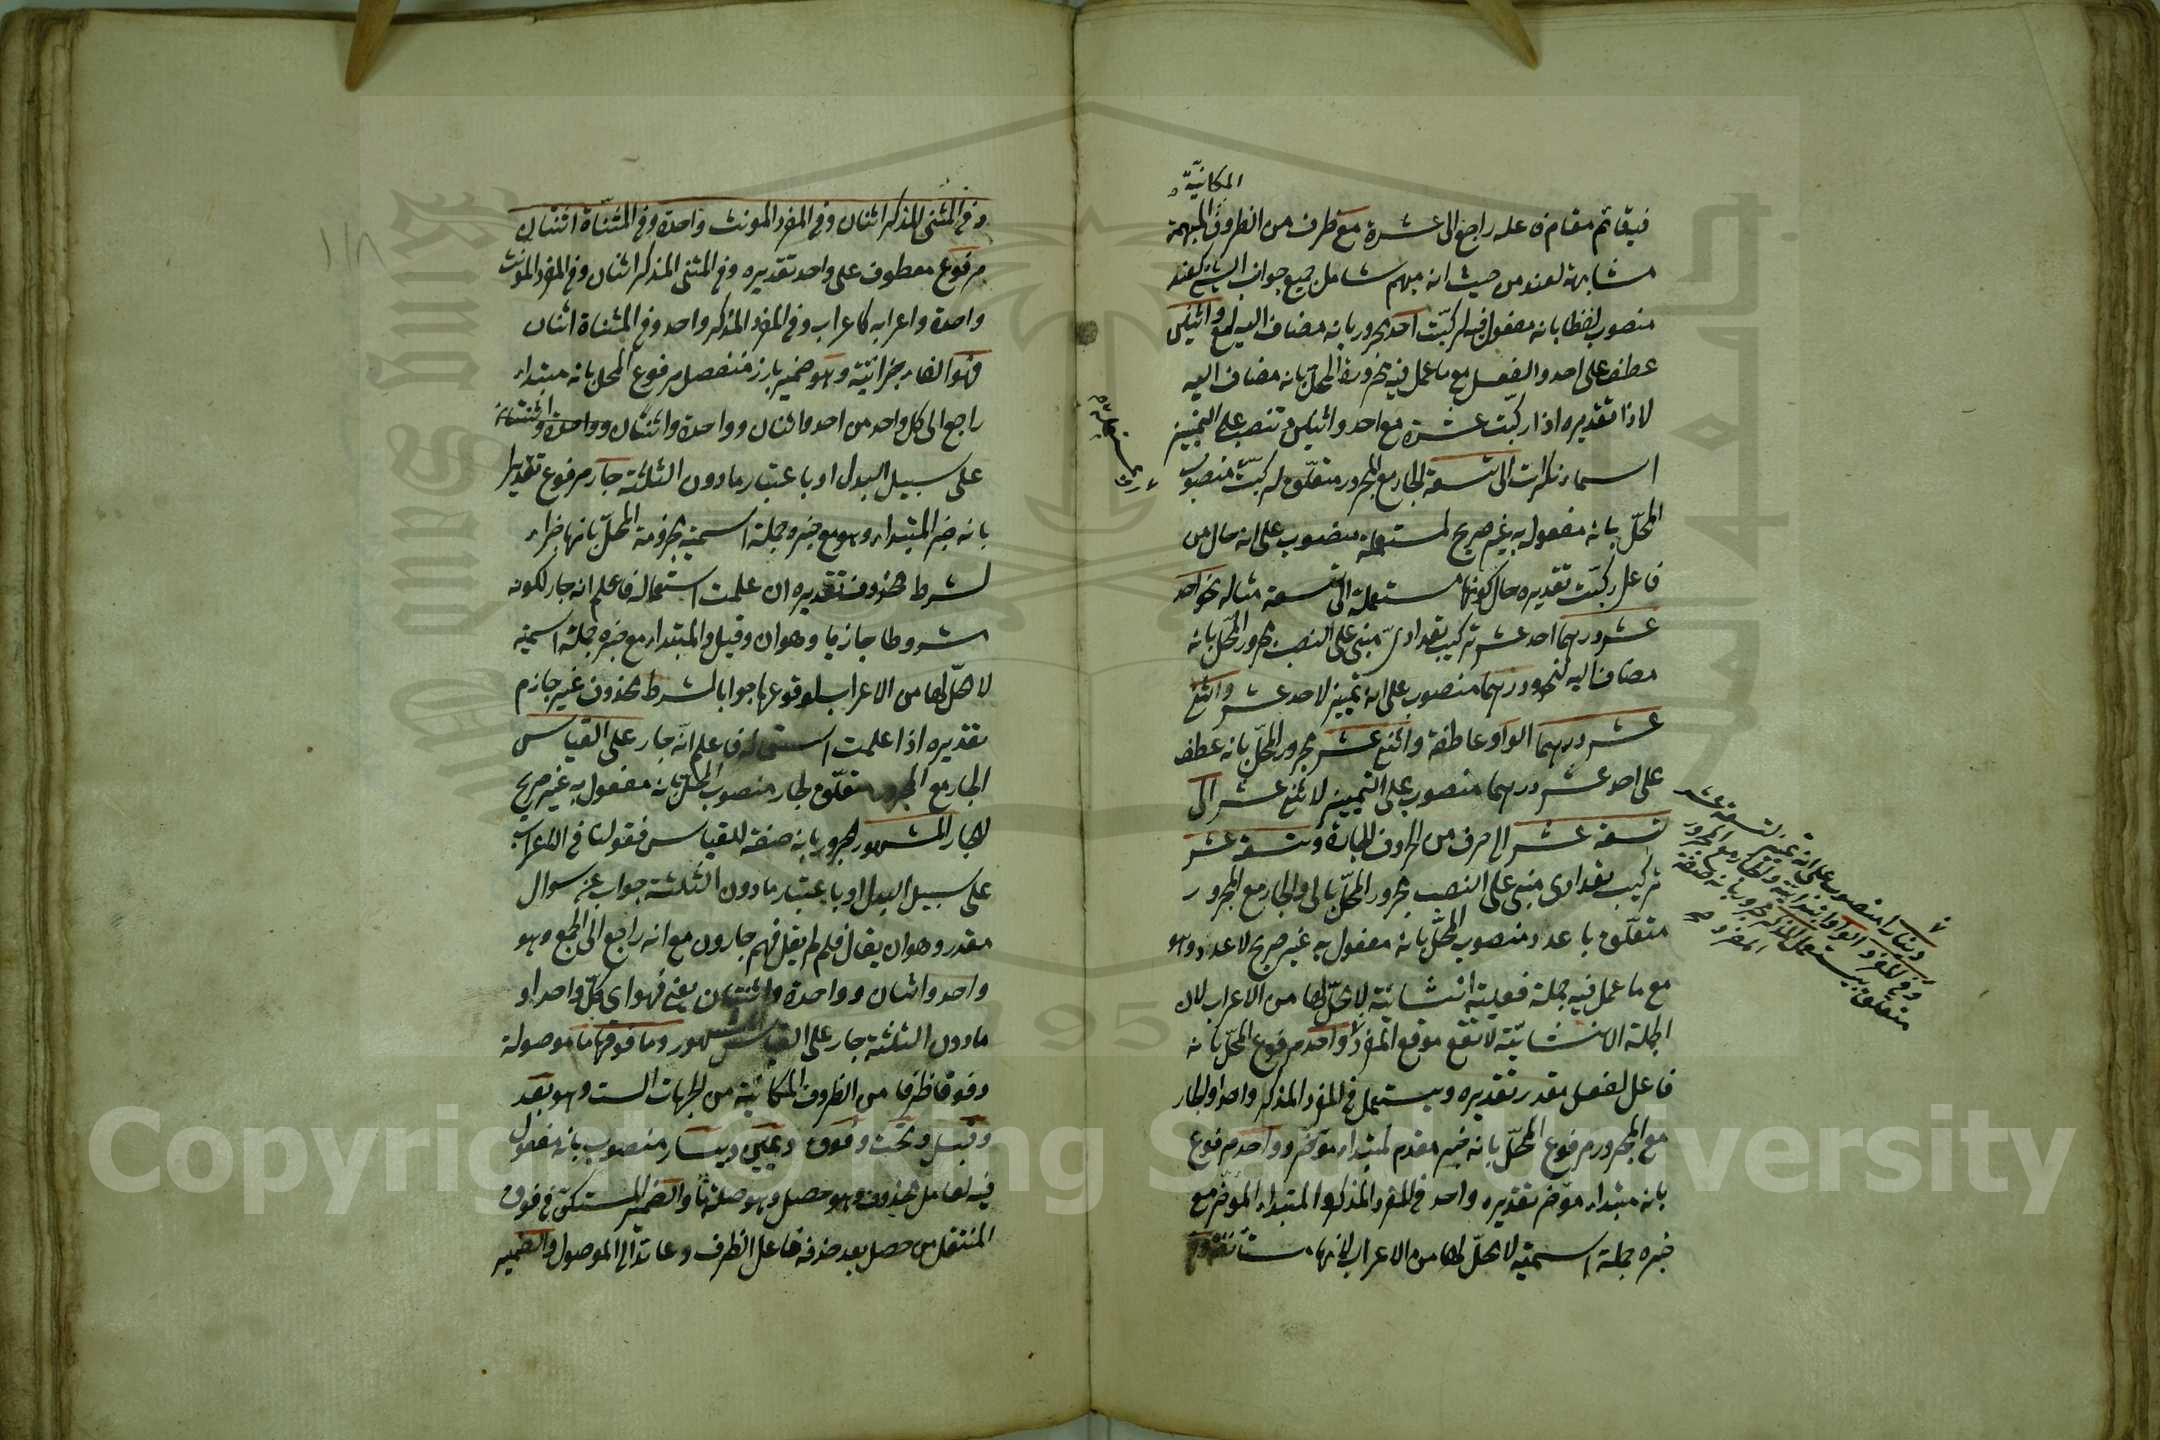 المكانية
فيه قائم مقام فاعله راجع الى عشرة مع ظرف من الظروف المبهمة
مشابهة لعند من حيث انه مبهم شامل جميع جوانب الشئ كعند
منصوب لفظا بانه مفعول فيه لركبت احد مجرور بانه مضاف اليه لمع واثنين
عطف على احد والفعل مع ما عمل فيه مجرورة المحل بانه مضاف اليه
لاذا تقديره اذا ركبت عشرة مع احد واثنين تنصب على التمييز
اسماء نكرات الى تسعة الجار مع المجرور متعلق لركبت منصوب
المحل بانه مفعول به غير صريح لمستعملة منصوب على انه حال من
فاعل ركبت تقديره حال كونها مستعملة الى تسعة مثاله نحو احد
عشر درهما احد عشر تركيب تعدادى مبنى على النصب مجرور المحل بانه
مضاف اليه لنحو ودرهما منصوب على انه تمييز لاحد عشر واثنى
عشر درهما الواو عاطفة واثنى عشر مجرور المحل بانه عطف
على احد عشر درهما منصوب على التمييز لاثنى عشر الى
تسعة عشر الى حرف من الحروف الجارة وتسعة عشر
تركيب تعدادى مبنى على النصب مجرور المحل بالى والجار مع المجرور
متعلق باعدد منصوب المحل بانه مفعول به غير صريح لاعدد وهو
مع ما عمل فيه جملة فعلية انشائية لا محل لها من الاعراب لان
الجملة الانشائية لا تقع موقع المفرد واحد مرفوع المحل بانه
فاعل لفعل مقدر تقديره ويستعمل فى المفرد المذكر واحد او الجار
مع المجرور مرفوع المحل بانه خبر مقدم لمبتداء مؤخر وواحد مرفوع
بانه مبتداء مؤخر تقديره واحد فى المفرد المذكر والمبتداء المؤخر مع
خبره جملة اسمية لا محل لها من الاعراب لانها مستأنفة
دينارا منصوب على انه تمييز لتسعة عشر
وفى المفرد الواو ابتدائية والجار مع المجرور
متعلق بيستعمل المذكر مجرور بانه صفة
المفرد صح
وفى المثنى المذكر اثنان وفى المفرد المونث واحدة وفى المثناة اثنتان
مرفوع معطوف على واحد تقديره وفى المثنى المذكر اثنان وفى المفرد المونث
واحدة واعرابه كاعراب وفى المفرد المذكر واحد وفى المثناة اثنان
فهو الفاء جزائية وهو ضمير بارز منفصل مرفوع المحل بانه مبتداء
راجع الى كل واحد من احد واثنان وواحدة واثنتان وواحدة واثنتان
على سبيل البدل او باعتبار مادون الثلثة جار مرفوع تقديرا
بانه خبر المبتداء وهو مع خبره جملة اسمية مجزومة المحل بانها جزاء
لشرط محذوف تقديره ان علمت استعماله فاعلم انه جار لكونه
مشروطا جازما وهو ان وقيل والمبتداء مع خبره جملة اسمية
لا محل لها من الاعراب لوقوعها جوابا لشرط محذوف غير جازم
تقديره اذا علمت استعماله فاعلم انه جار على القياس
الجار مع المجرور متعلق لجار منصوب المحل بانه مفعول به غير صريح
لجار المشهور مجرور بانه صفة للقياس فقولنا فى الاعراب
على سبيل البدل او باعتبار مادون الثلثة جواب عن سوال
مقدر وهو ان يقال فلم لم يقل فهم جارون مع انه راجع الى الجمع وهو
واحد واثنان وواحدة واثنتان يعنى فهو اى كل واحد او
مادون الثلثة جار على القياس المشهور وما فوقها ما موصولة
وفوقها ظرفا من الظروف المكانية من الجهات الست وهو بعد
وقبل وتحت وفوق ويمين ويسار منصوب بانه مفعول
فيه لعامل محذوف وهو حصل وهو صلة ما والضمير المستكن فى فوق
المنتقل من حصل بعد حذفه فاعل الظرف وعائد الى الموصول والضمير